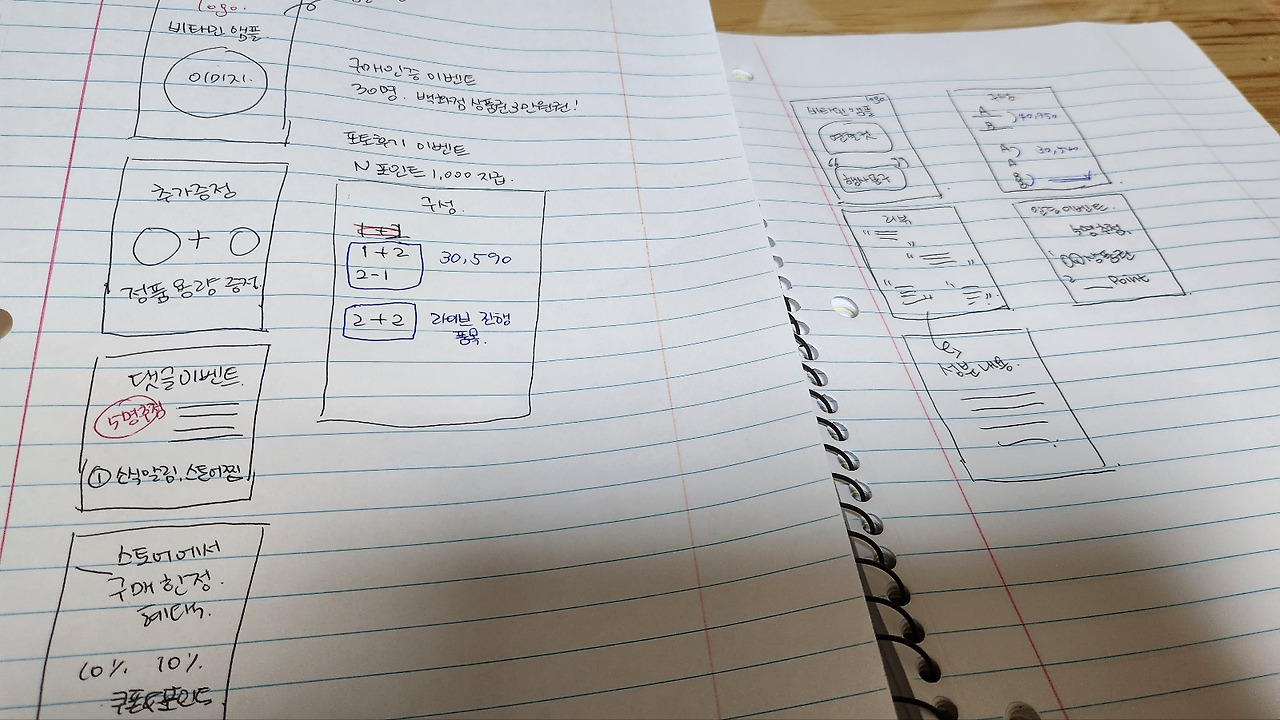 logo.
비타민 앰플
이미지.
추가증정
+
정품용량 증정
댓글이벤트.
5명추첨
① 소식알림, 스토어찜
스토어에서
구매 한정.
혜택.
10% 10%
쿠폰&포인트
구매인증 이벤트
30명. 백화점 상품권 3만원권!
포토후기 이벤트
N 포인트 1,000 지급.
구성.
1+2
2-1
30,590
2+2
라이브 진행
품목.
logo
비타민 앰플
구성
A
B
40,950
A
A
B
30,590
리뷰
" "
" "
" " " "
이벤트.
5명추첨,
1.
2. Point
성분내용.